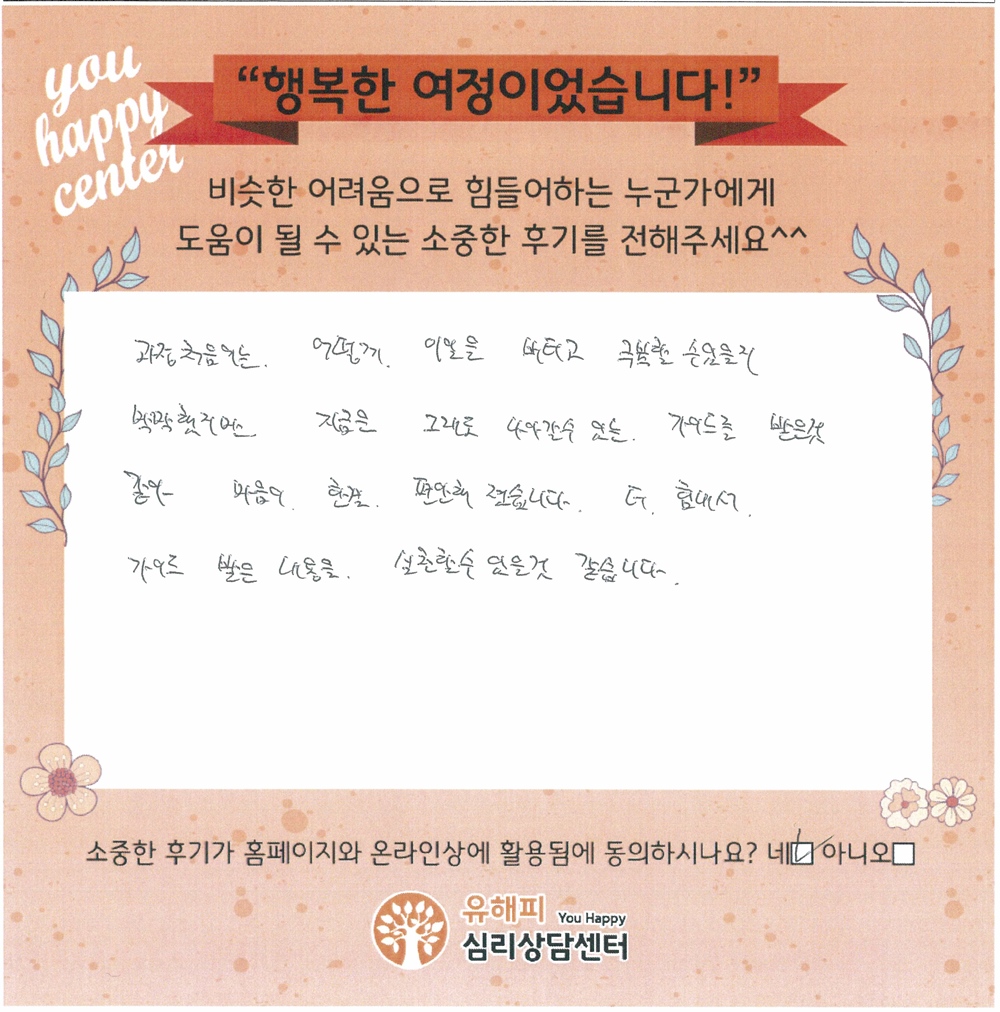 you
happy
center
“행복한 여정이었습니다!”
비슷한 어려움으로 힘들어하는 누군가에게
도움이 될 수 있는 소중한 후기를 전해주세요^^
과정 처음에는. 어떻게. 이 일을 버티고 극복할 수 있을지
막막했지만. 지금은 그래도 나아갈수 있는. 가이드를 받은것
같아 마음이. 한결. 편안해 졌습니다. 더. 힘내서.
가이드 받은 내용을. 실천할수 있을것 같습니다.
소중한 후기가 홈페이지와 온라인상에 활용됨에 동의하시나요? 네 아니오
유해피 You Happy
심리상담센터